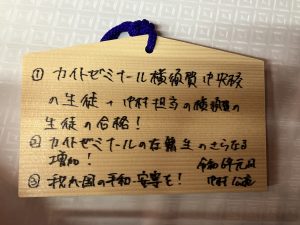 ① カイトゼミナール横須賀中央校
の生徒→中村担当の横須賀の
生徒の合格!
② カイトゼミナールの在籍生のさらなる
増加!
令和6年元旦
③ 我が国の平和・安寧を!
中村